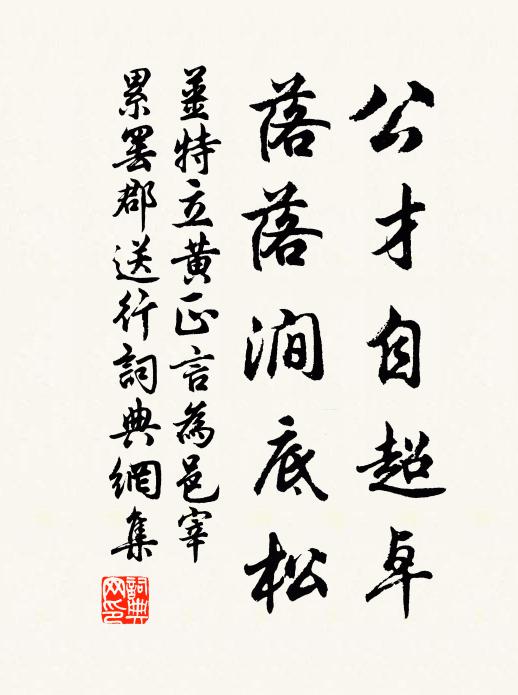 公才自超卓
落落澗底松
姜特立黄正言為邑宰
累罢郡送行詞典網集
詞典网印